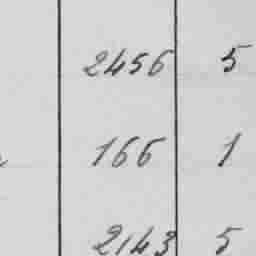 2456 5
166 1
2143 5